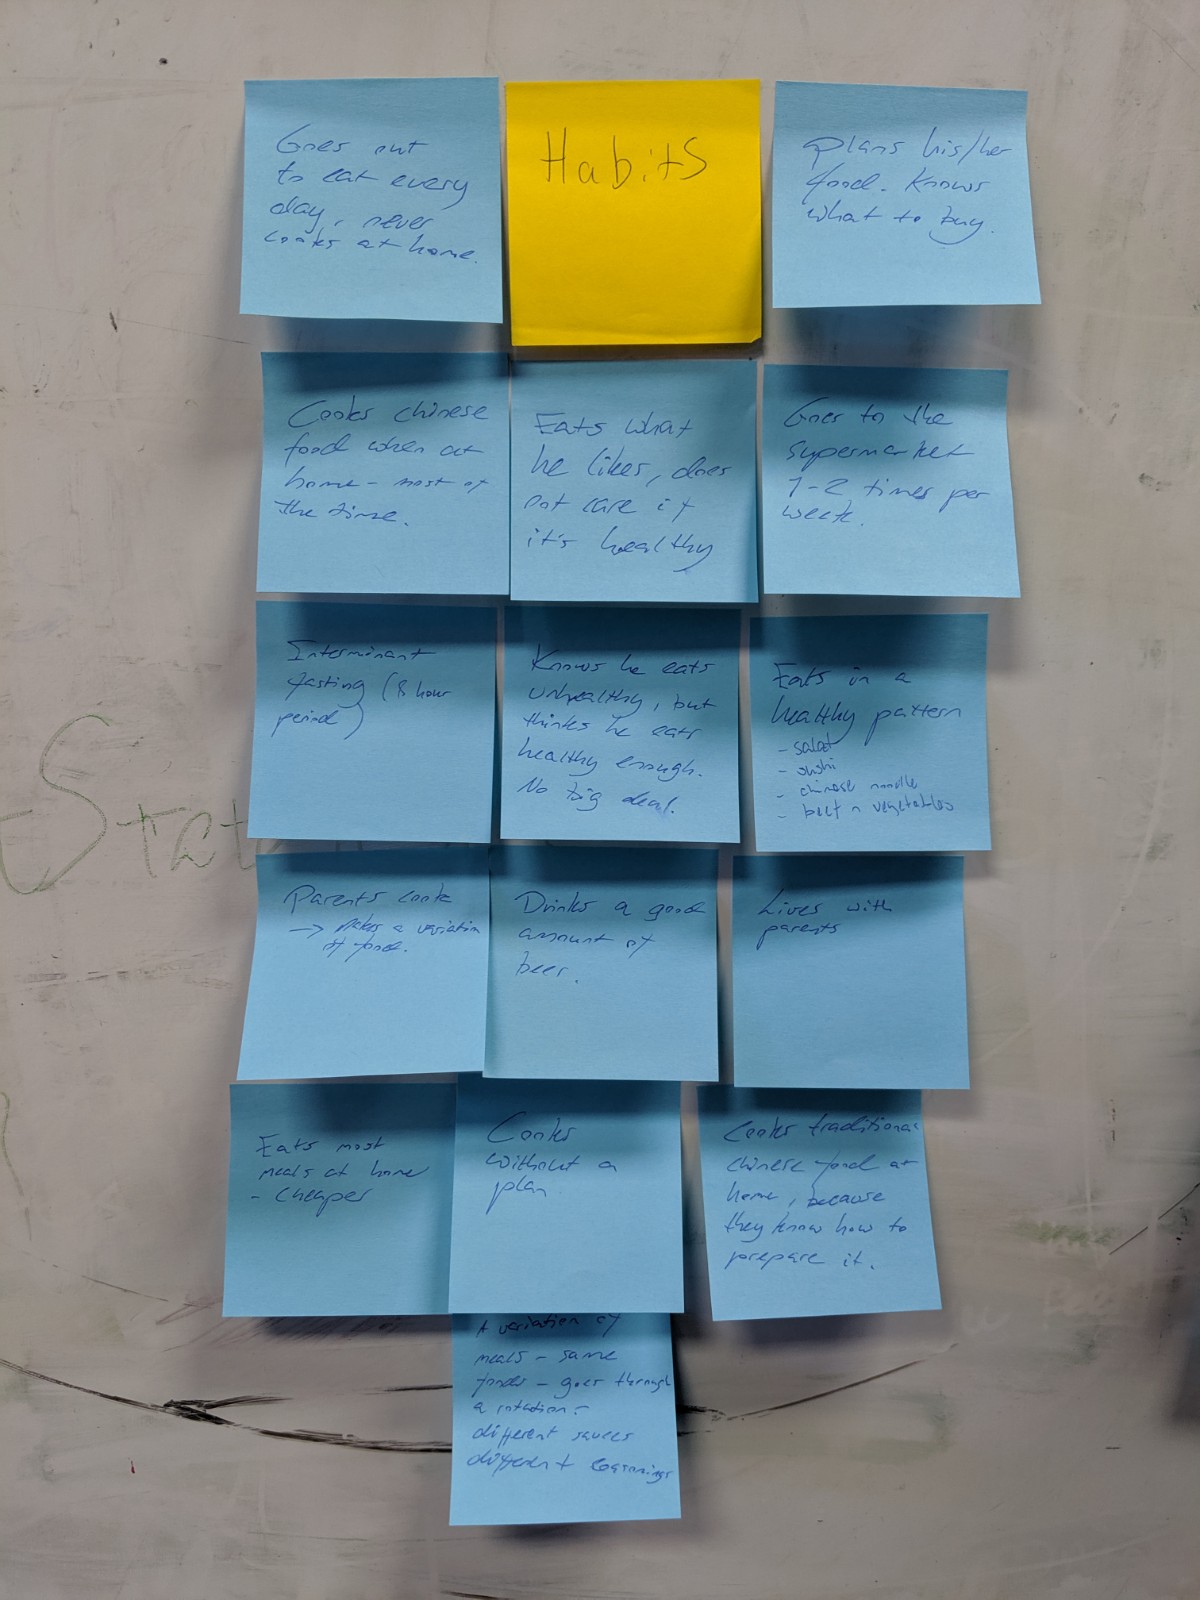 Goes out
to eat every
day, never
cooks at home.
Habits
Plans his/her
food. Knows
what to buy.
Cooks chinese
food when at
home - most of
the time.
Eats what
he likes, does
not care if
it's healthy
Goes to the
supermarket
1-2 times per
week.
Interminant
fasting (8 hour
period)
Knows he eats
unhealthy, but
thinks he eats
healthy enough.
No big deal.
Eats in a
healthy pattern
- salat
- sushi
- chinese noodle
- beef n vegetables
Stat
Parents cook
→ makes a variation
of food.
Drinks a good
amount of
beer.
Lives with
parents
Eats most
meals at home
- cheaper
Cooks
without a
plan
Cooks traditional
chinese food at
home, because
they know how to
prepare it.
A variation of
meals - same
foods - goes through
a rotation -
different sauces
different seasonings